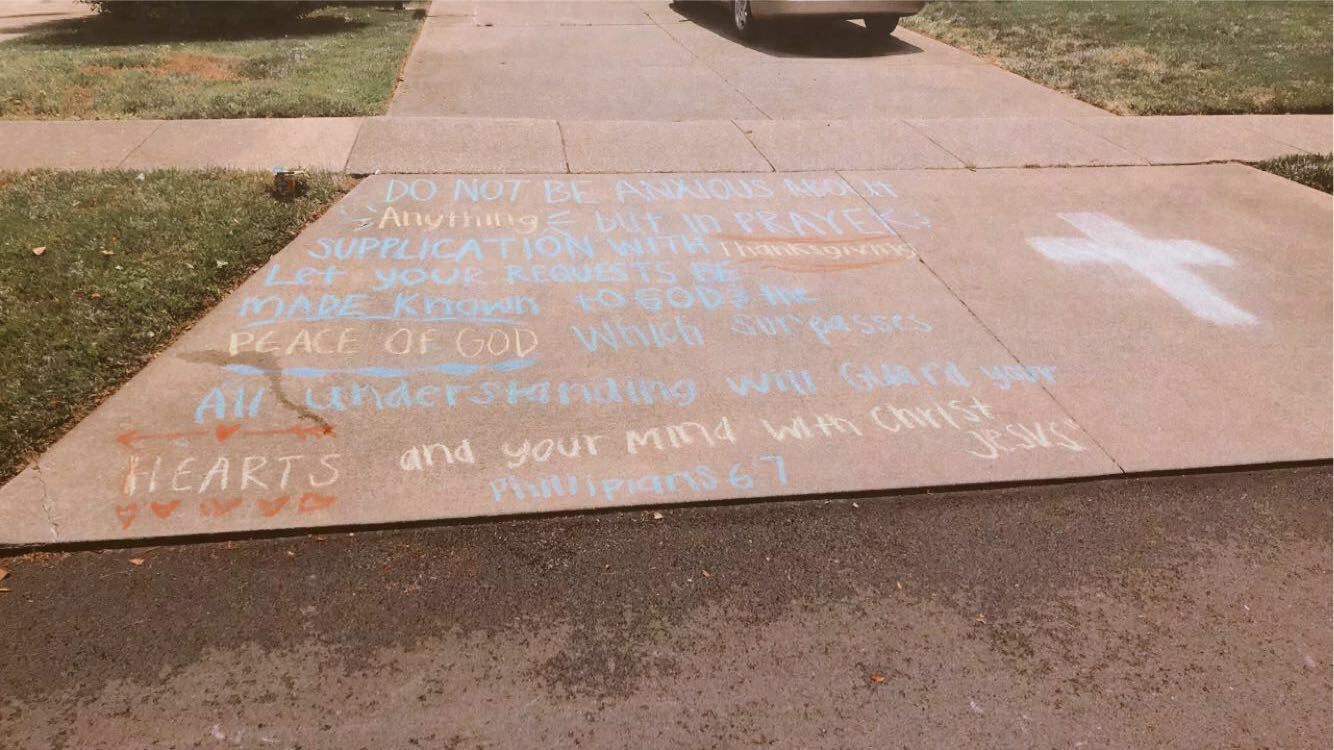 DO NOT BE ANXIOUS ABOUT
Anything but in PRAYER &
SUPPLICATION WITH Thanksgiving
Let your REQUESTS BE
MADE Known to GOD & the
PEACE OF GOD which surpasses
All understanding will Guard your
HEARTS and your Mind with Christ
JESUS
Phillipians 6:7